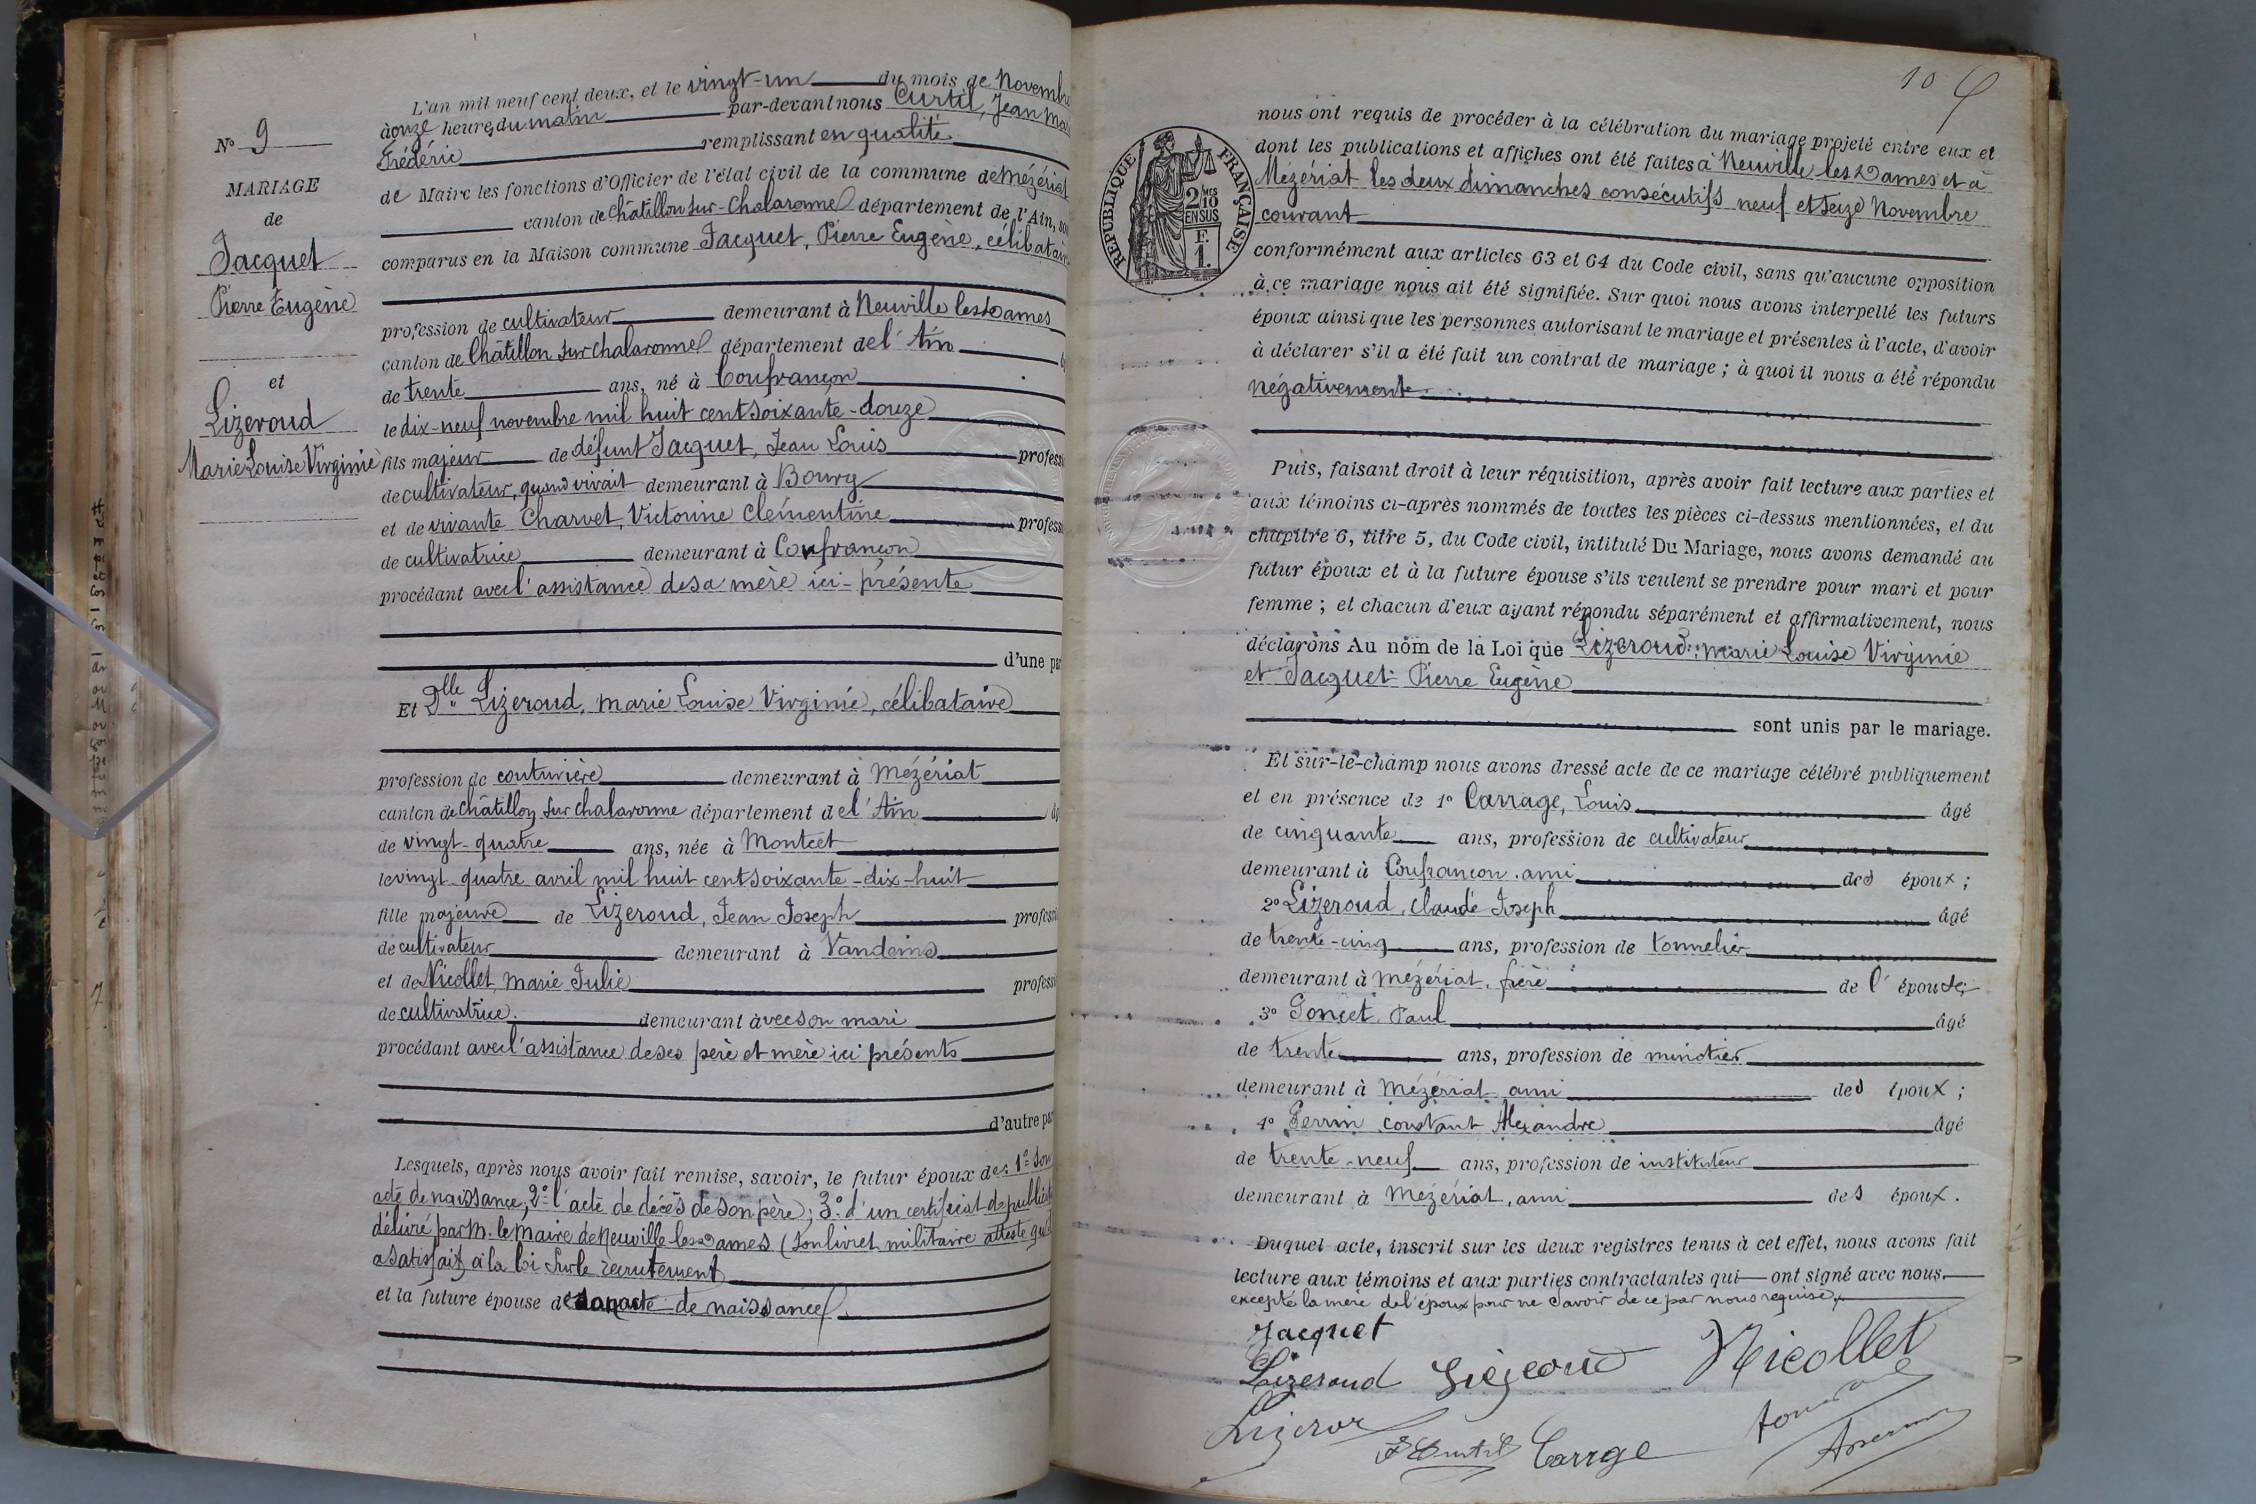 N° 9
MARIAGE
de
Jacquet
Pierre Eugène
et
Lizeroud
Marie Louise Virginie
L'an mil neuf cent deux, et le vingt-un du mois de Novembre
à onze heures du matin par-devant nous Curtil, Jean Ma
Frédéric remplissant en qualité
de Maire les fonctions d'Officier de l'état civil de la commune de Mézériat
canton de Châtillon sur-Chalaronne département de l'Ain, son
comparus en la Maison commune Jacquet, Pierre Eugène, célibataire
profession de cultivateur demeurant à Neuville les Dames
canton de Châtillon sur Chalaronne département de l'Ain
de trente ans, né à Confrançon
le dix-neuf novembre mil huit cent soixante-douze
fils majeur de défunt Jacquet, Jean Louis professi
de cultivateur, quand vivait demeurant à Bourg
et de vivante Charvet, Victorine Clémentine professi
de cultivatrice demeurant à Confrançon
procédant avec l'assistance de sa mère ici-présente
d'une par
Et Dlle Lizeroud, Marie Louise Virginie, célibataire
profession de couturière demeurant à Mézériat
canton de Châtillon sur Chalaronne département de l'Ain
de vingt-quatre ans, née à Montcet
le vingt-quatre avril mil huit cent soixante-dix-huit
fille majeure de Lizeroud, Jean Joseph professi
de cultivateur demeurant à Vandeins
et de Nicollet, Marie Julie professi
de cultivatrice demeurant avec son mari
procédant avec l'assistance de ses père et mère ici présents
d'autre par
Lesquels, après nous avoir fait remise, savoir, le futur époux de: 1° Son
acte de naissance, 2° l'acte de décès de son père; 3° d'un certificat de publicat
délivré par M. le Maire de Neuville les Dames (son livret militaire atteste qu'il
a satisfait à la loi sur le recrutement
et la future épouse de son acte de naissance
10
RÉPUBLIQUE FRANÇAISE
2 MES
10
EN SUS
F.
1.
nous ont requis de procéder à la célébration du mariage projeté entre eux et
dont les publications et affiches ont été faites à Neuville les Dames et à
Mézériat les deux dimanches consécutifs neuf et seize Novembre
courant
conformément aux articles 63 et 64 du Code civil, sans qu'aucune opposition
à ce mariage nous ait été signifiée. Sur quoi nous avons interpellé les futurs
époux ainsi que les personnes autorisant le mariage et présentes à l'acte, d'avoir
à déclarer s'il a été fait un contrat de mariage; à quoi il nous a été répondu
négativement
Puis, faisant droit à leur réquisition, après avoir fait lecture aux parties et
aux témoins ci-après nommés de toutes les pièces ci-dessus mentionnées, et du
chapitre 6, titre 5, du Code civil, intitulé Du Mariage, nous avons demandé au
futur époux et à la future épouse s'ils veulent se prendre pour mari et pour
femme; et chacun d'eux ayant répondu séparément et affirmativement, nous
déclarons Au nom de la Loi que Lizeroud, Marie Louise Virginie
et Jacquet Pierre Eugène
sont unis par le mariage.
Et sur-le-champ nous avons dressé acte de ce mariage célébré publiquement
et en présence de 1° Carrage, Louis âgé
de cinquante ans, profession de cultivateur
demeurant à Confrançon, ami des époux;
2° Lizeroud, Claude Joseph âgé
de trente-cinq ans, profession de tonnelier
demeurant à Mézériat, frère de l'épouse;
3° Goncet, Paul âgé
de trente ans, profession de minotier
demeurant à Mézériat, ami des époux;
4° Perrin, Constant Alexandre âgé
de trente-neuf ans, profession de instituteur
demeurant à Mézériat, ami des époux.
Duquel acte, inscrit sur les deux registres tenus à cet effet, nous avons fait
lecture aux témoins et aux parties contractantes qui ont signé avec nous
excepté la mère de l'époux pour ne savoir de ce par nous requise,
Jacquet
Lizeroud Nicollet
Curtil Carrge